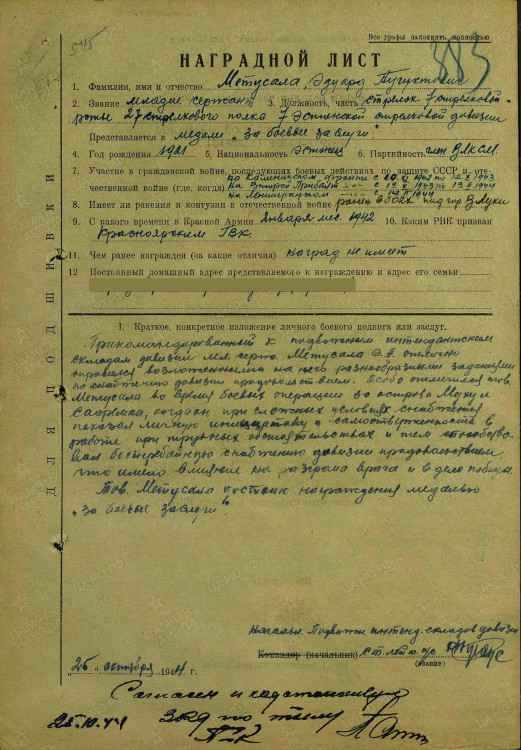 Все графы заполнять полностью
545
385
НАГРАДНОЙ ЛИСТ
1. Фамилия, имя и отчество Метусала, Эдуард
2. Звание младш. сержант 3. Должность, часть стрелок 7 стрелковой
роты 27 стрелкового полка 7 Эстонской стрелковой дивизии
Представляется к медали „За боевые заслуги"
4. Год рождения 1921 5. Национальность Эстонец 6. Партийность член ВЛКСМ
7. Участие в гражданской войне, последующих боевых действиях по защите СССР и оте-
чественной войне (где, когда) на Калининском фронте с
на Втором Прибалт. —"— с
на Ленинградском —"— с
8. Имеет ли ранения и контузии в отечественной войне ранен в боях под гор. В. Луки
9. С какого времени в Красной Армии Января мес. 1942 10. Каким РВК призван
Красноярским ГВК.
11. Чем ранее награжден (за какие отличия) наград не имеет
12 Постоянный домашний адрес представляемого к награждению и адрес его семьи
ДЛЯ ПОДШИВКИ
I. Краткое, конкретное изложение личного боевого подвига или заслуг.
Прикомандированный к подвижным интендантским
складам дивизии мл. серж. Метусала Э.А. отлично
справился возложенными на него разнообразными заданиями
по снабжению дивизии продовольствием. Особо отличился тов.
Метусала во время боевых операции за острова Муху и
Сааремаа, когда он при сложных условиях снабжения
показал личную инициативу и самоотверженность в
работе при трудных обстоятельствах и тем способство-
вал бесперебойную снабжению дивизии продовольствием,
что имело влияние на разгром врага и в деле победы.
Тов. Метусала достоин награждения медалью
„За боевые заслуги".
Начальн. Подвижн. интенд. складов дивизии
Командир (начальник) ст. лейт. а/с
(звание)
25 „ октября 1944 г.
Согласен и ходатайствую
25.10.44